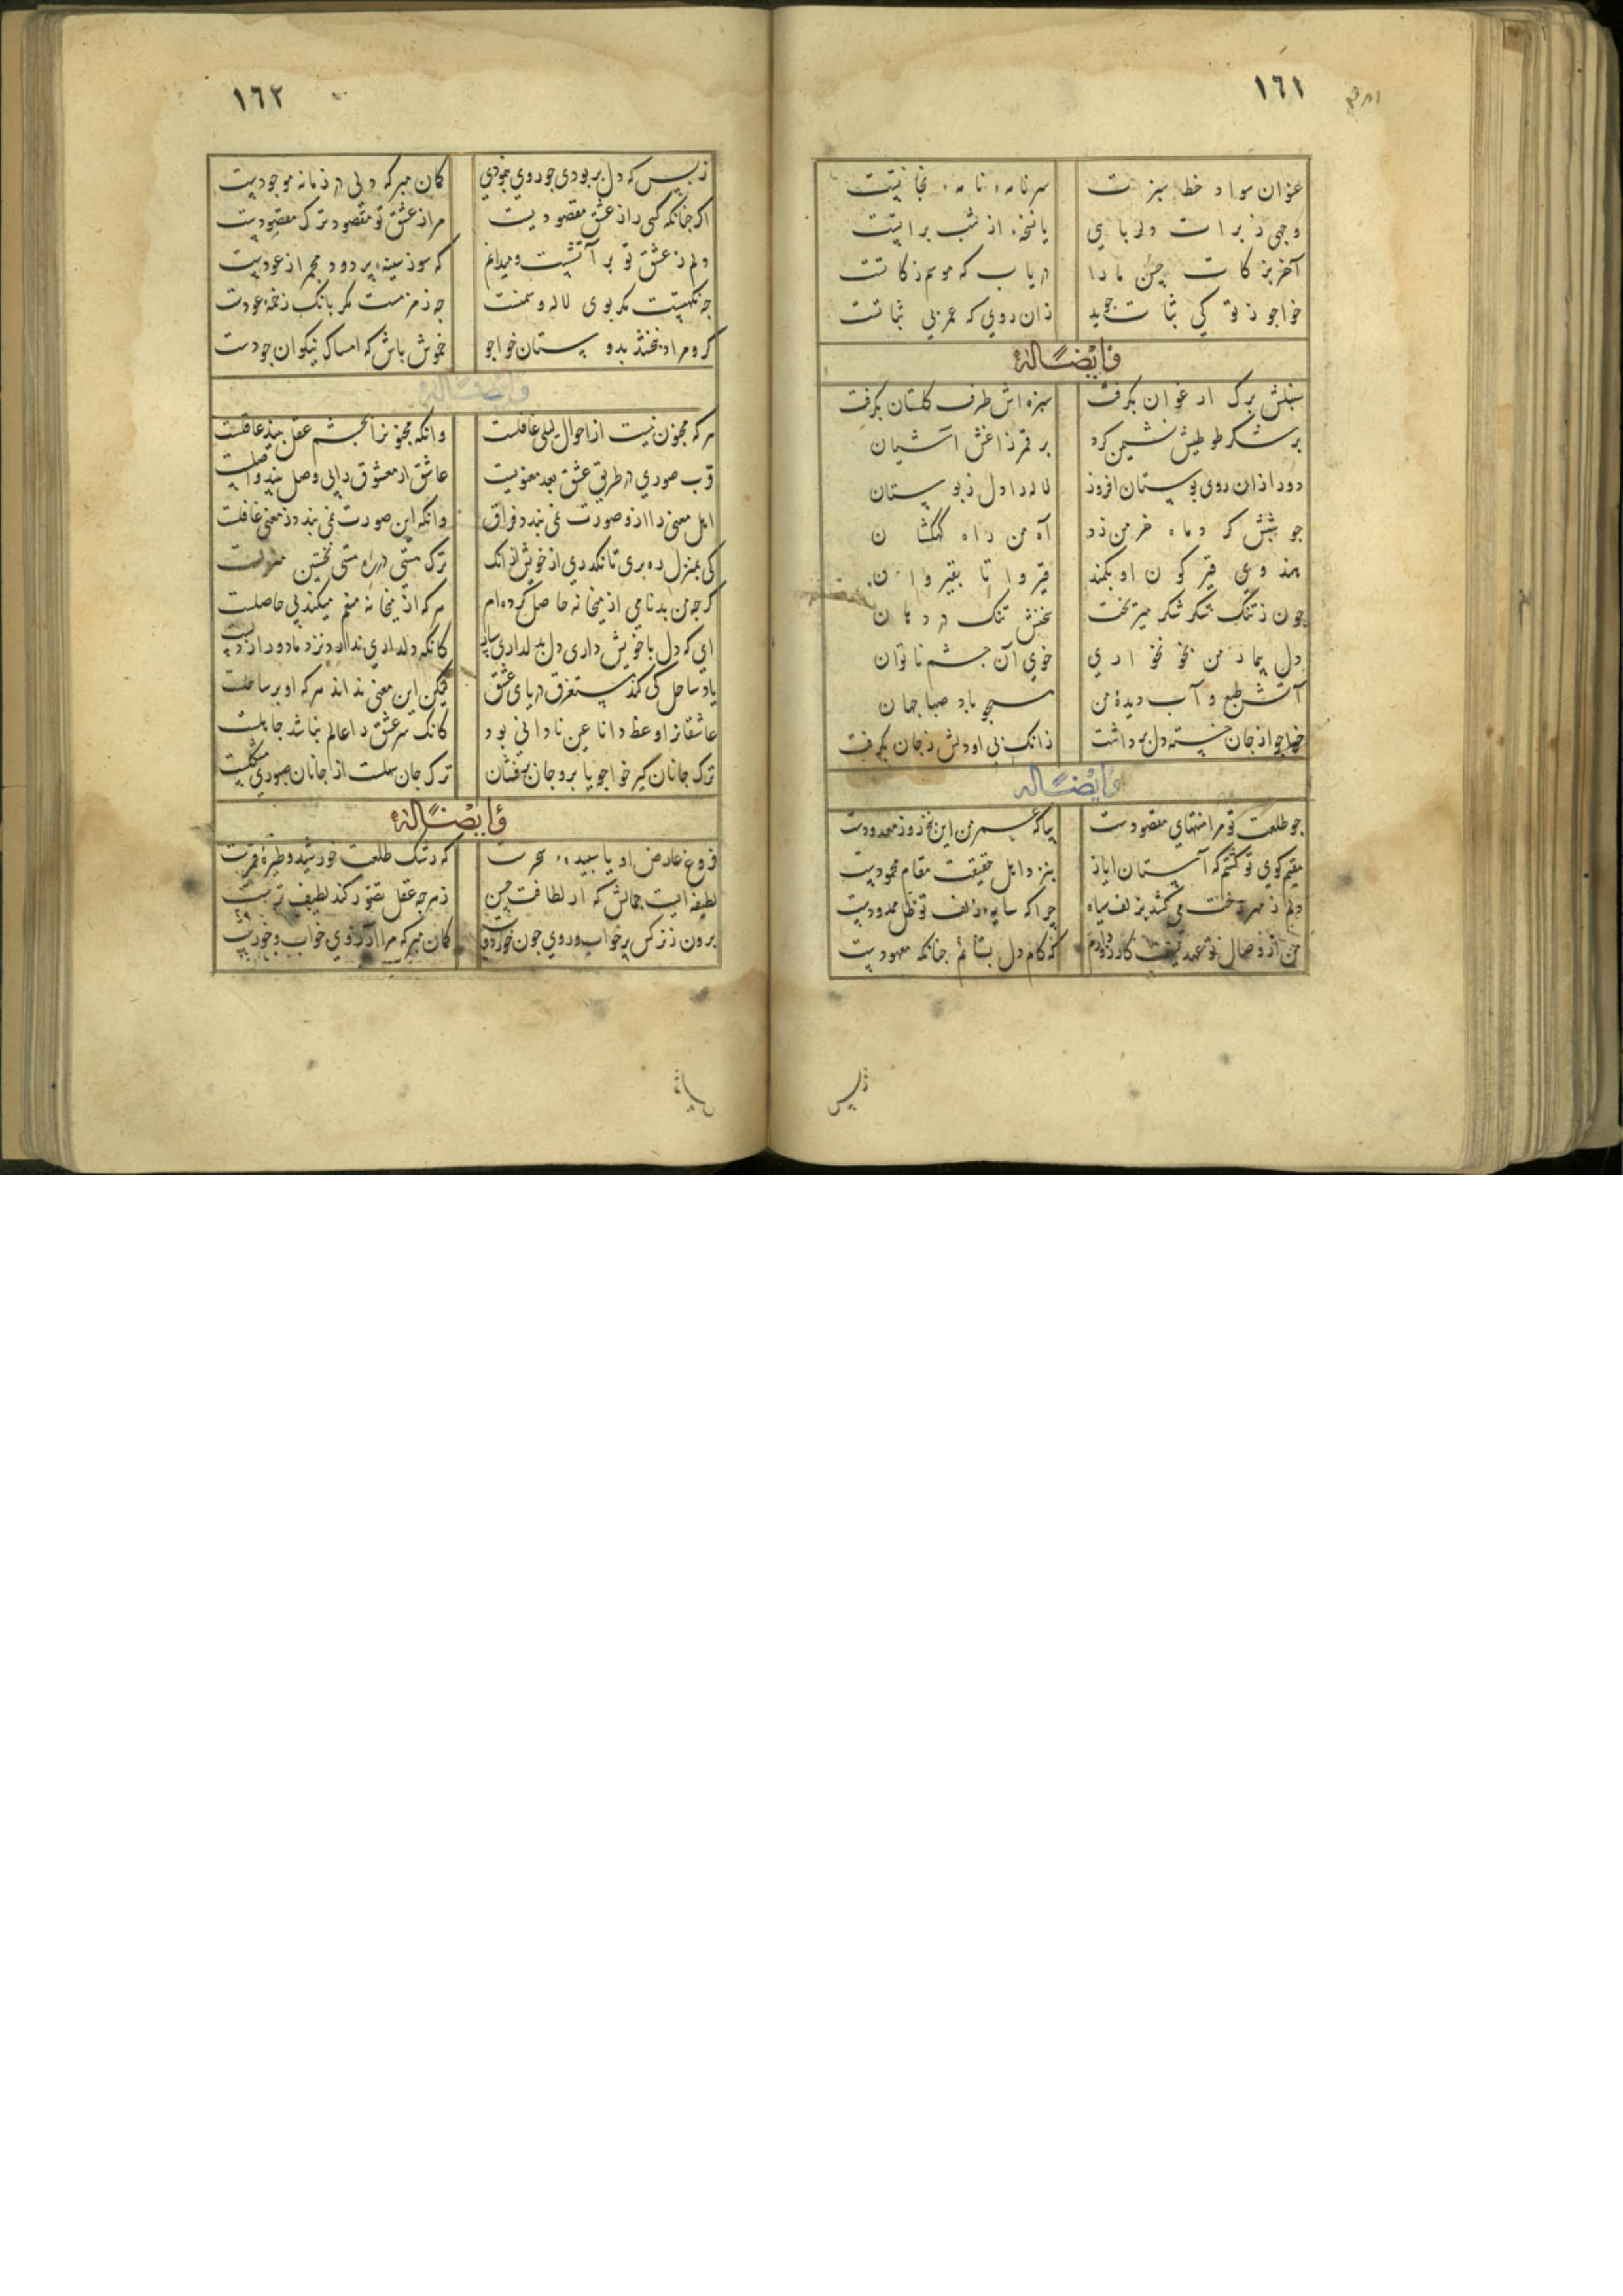 ١٦١
عنوان سواد خط سبزت سرنامهٔ نامهٔ نجاتیت
وجهی ز برات دلربایی یا نسخهٔ از شب براتیت
آخر بزکات حسن ما را دریاب که موسم زکاتت
خواجو ز تو کی ثبات جوید زان روی که عمر بی ثباتت
وَایْضًا لَهُ
سنبلش برک ارغوان بکرفت سبزه اش طرف کلستان بکرفت
بر شکر طوطیش نشیمن کرد بر قمر زاغش آشیان
دور از ان روی بوستان افروز لاله را دل ز بوستان
جو شبش کرد ماه خرمن زد آه من راه کهکشان
هندوی قیرکون او بکمند قیروان تا بقیروان
چون ز تنک شکر شکر میریخت سخنش تنک در دهان
دل بیمار من بخونخواری خوی آن جشم ناتوان
آتش طبع و آب دیدهٔ من همجو باد صبا جهان
خواجو از جان خسته دل برداشت زانک بی او دلش ز جان بکرفت
وَایْضًا لَهُ
جو طلعت تو مرا منتهای مقصودست بیا که عمر من این پنج روز معدودست
مقیم کوی تو کشتم که آستان ایاز بنزد اهل حقیقت مقام محمودیست
دلم ز مهر رخت می کشد بزلف سیاه چرا که سایهٔ زلف تو ظل ممدودیست
من از وصال تو عهدیست کارزو دارم که کام دل بستانم جنانکه معهودیست
زبس
١٦٢
زبس که دل بربودی جو روی بنمودی کمان مبر که دلی در زمانه موجودیست
اکر جنانکه کسی را ز عشق مقصودیست مرا ز عشق تو مقصود ترک مقصودیست
دلم ز عشق تو بر آتشیست و میدانم که سوز سینهٔ پر دود مجمر از عودیست
چه نکهتیست مکر بوی لاله و سمنست جه زمزمست مکر بانک زخمهٔ عودت
کرو مراد نبخشد بدوستان خواجو خموش باش که امساک نیکوان جودت
وَایْضًا لَهُ
هر که مجنون نیست از احوال لیلی غافلست وانکه مجنون را بجشم عقل بیند عاقلست
قرب صوری در طریق عشق بعد معنویست عاشق ار معشوق را بی وصل بیند واصلست
اهل معنی را از و صورت نمی بندد فراق وانکه این صورت نمی بندد ز معنی غافلت
کی بمنزل ره بری تا نکذری از خویش از انک ترک هستی در ره مستی نخستین منزلست
کرجه من بدنامی از میخانه حاصل کرده ام هر که از میخانه منعم میکند بی حاصلت
ای که دل با خویش داری دل بدلداری سپار کانکه دلداری ندارد نزد ما دور از دلیست
یاد ساحل کی کند مستغرق دریای عشق لیکن این معنی نداند هر که او بر ساحلت
عاشقان را وعظ دانا عین نادانی بود کانک سر عشق را عالم نباشد جاهلت
ترک جانان کیر خواجو یا برو جان برفشان ترک جان سهلست از جانان صبوری مشکلست
وَایْضًا لَهُ
فروغ عارض او یا سپیدهٔ سحرت که رشک طلعت خورشید و طیرهٔ قمرت
لطیفه ایست جمالش که از لطافت حسن ز هرجه عقل تصور کند لطیف ترست
برون ز نرکس پرخواب و روی جون خور دوست کمان مبر که مرا آرزوی خواب و خورست